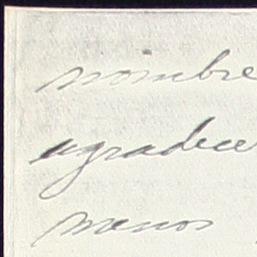 nombre
agradece
menos